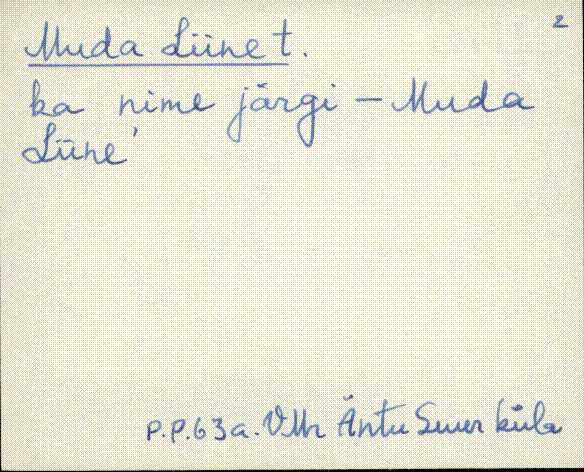 2
Muda Liine t.
ka nime järgi – Muda
Liine'
P.P. 63 a. VMr Äntu Suurküla